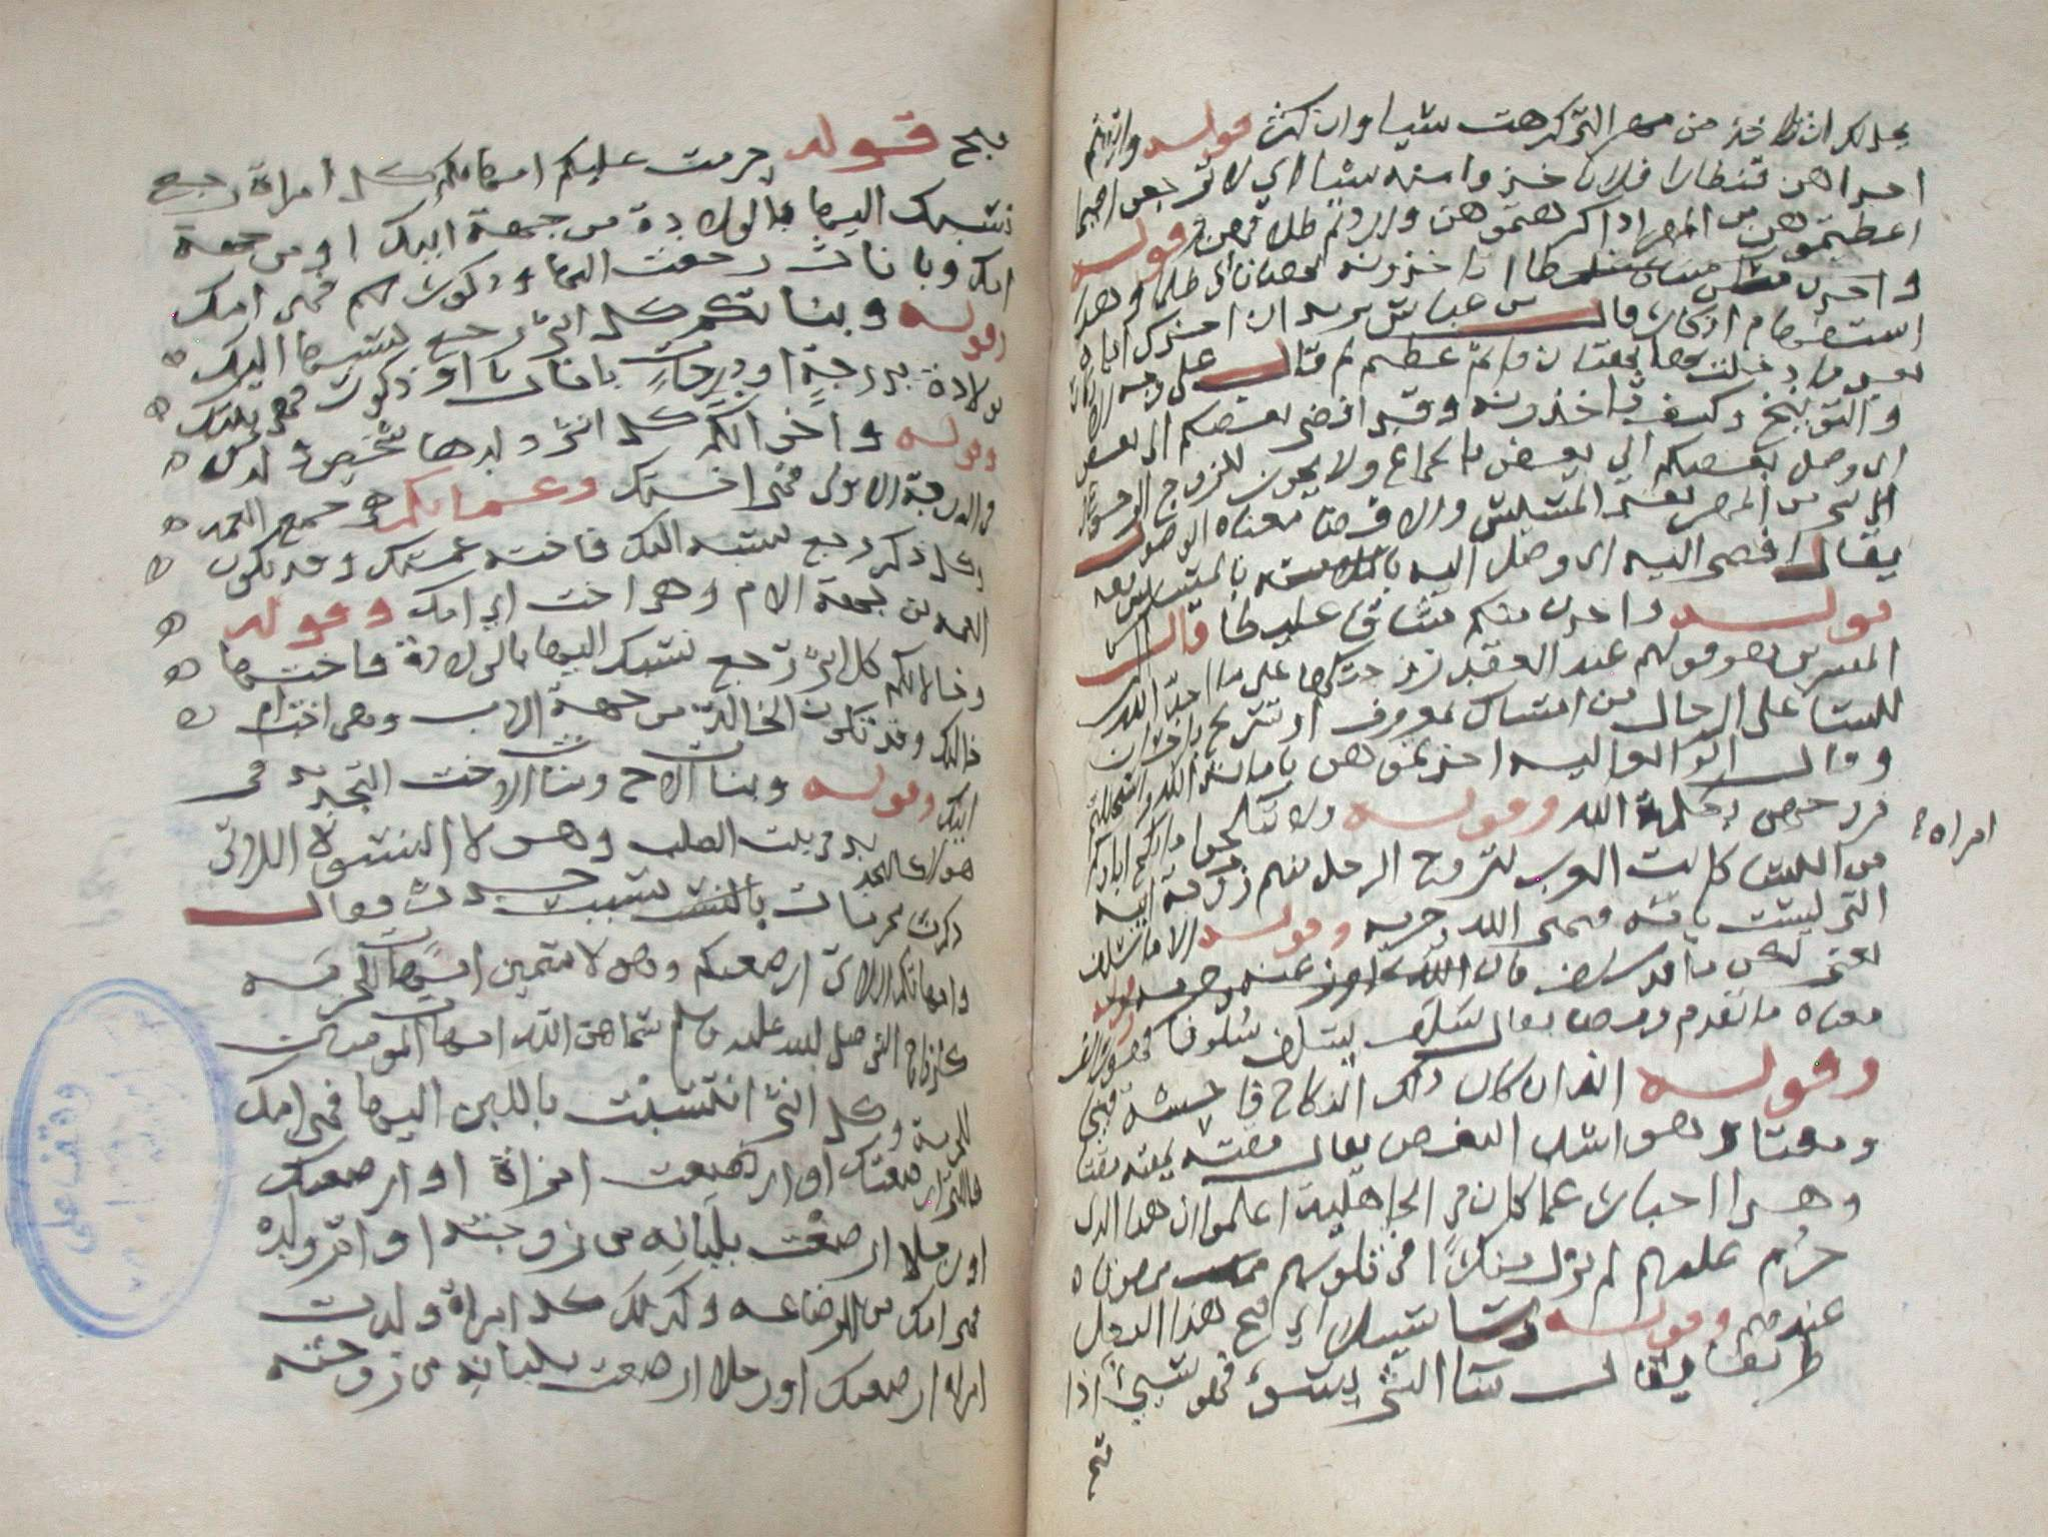 يحل لكم ان تاخذ من مهر التي كرهت شيا وان كثر قوله واتيتم
احداهن قنطارا فلا تاخذوا منه شيا اي لا ترجعن فيما
اعطيتموهن من المهر اذا كرهتموهن واردتم طلاقهن قوله
واخذن منكم ميثاقا غليظا اتاخذونه بهتانا اي ظلما وهذا
استفهام انكار قال بن عباس يريد ان اخذك اياه
بعد ما دخلت بها بهتان واثم عظيم ثم قال على وجه الانكار
والتوبيخ وكيف تاخذونه وقد افضى بعضكم الى بعض
اي وصل بعضكم الي بعض بالجماع ولا يجوز للزوج الرجوع
الى شي من المهر بعد المسيس والافضا معناه الوصول
يقال افضى اليه اي وصل اليه بالملامسة
قوله واخذن منكم ميثاقا غليظا قال
المفسرين هو قولهم عند العقد زوجتكها على ما اخذ الله
للنسا على الرجال من امساك بمعروف او تسريح باحسان
وقال ابو العاليه اخذتموهن بامانة الله واستحللتم
فروجهن بكلمة الله وقوله ولا تنكحوا ما نكح اباوكم
من النسا كانت العرب يتزوج الرجل منهم زوجة ابيه امراه
التي ليست بامه فنهى الله وحرمه وقوله الا ما قد سلف
يعني لكن ما قد سلف فان الله تجاوز عنه
معناه ما تقدم ومضا يقال سلف يسلف سلوفا فهو سالف
وقوله انه كان ذلك النكاح فاحشة قبيح
ومقتا وهو اشد البغض يقال مقته يمقته مقتا
وهذا اخبار عما كان في الجاهلية اعلموا ان هذا الذي
حُرّم عليهم لم يزل منكرًا في قلوبهم ممقوتا
عندهم وقوله وسا سبيلا اي قبح هذا الفعل
طريقا يقال سا الشي يسوء فهو سيئ اذا
قبح
قبح قوله حرمت عليكم امهاتكم كل امراة رجع
نسبك اليها بالولادة من جهة ابيك او من جهة
امك وباناث رجعت اليها او ذكور فهي امك
وقوله وبناتكم كل انثى رجع نسبها اليك
بولادة بدرجةٍ او درجاتٍ باناث او ذكور فهي بنتك
وقوله واخواتكم كل انثى ولدها شخص ولدك
في الدرجة الاولى فهي اختك وعماتكم هي جمع العمه
وكل ذكر رجع نسبه اليك فاخته عمتك وقد تكون
العمه من جهة الام وهي اخت ابي امك وقوله
وخالاتكم كل انثى رجع نسبك اليها بالولادة فاختها
خالتك وقد تكون الخالة من جهة الاب وهي اخت ام
ابيك وقوله وبنات الاخ وبنات الاخت التحديد في
هولا كالتحديد في بنت الصلب وهولا النسوة اللاتي
ذكرن محرمات بالنسب وقال
وامهاتكم اللاتي ارضعنكم وهولا سمين امهات للحرمه
كازواج النبي صلى الله عليه وسلم سماهن الله امهات المومنين
للحرمة وكل انثى انتسبت باللبن اليها فهي امك
فالتي ارضعتك او ارضعت امراة او ارضعتك
او رجلا ارضعت بلبانه من زوجته او ام ولده
فهي امك من الرضاعه وكذلك كل امراة ولدت
امراه ارضعتك او رجلا ارضعت بلبانه من زوجته
وقف على